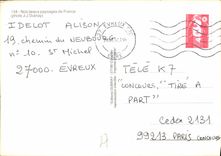 134 - Nos beaux paysages de France
IDELOT ALISON
19, chemin du NEUBOURG
n° 10. St Michel
27000. ÉVREUX
TÉLÉ K7
"CONCOURS, "TIRÉ À
PART"
Cedex 2131
99213 PARIS CONCOURS